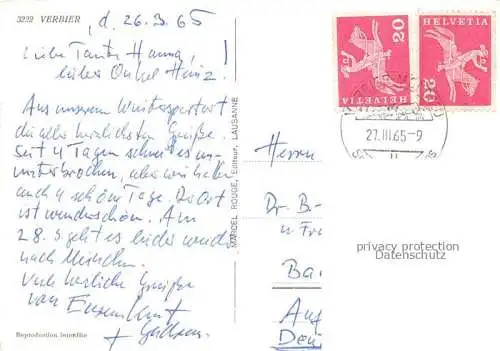 3222 VERBIER
, d. 26.3.65
Liebe Tante Hanna,
lieber Onkel Heinz!
Aus unserem Wintersportort
die allerherzlichsten Grüße.
Seit 4 Tagen schneit es un-
unterbrochen, aber wir hatten
auch 4 schöne Tage. Der Ort
ist wunderschön. Am
28.3 geht es leider wieder
nach München.
Viele herzliche Grüße
von Eurem
+
Reproduction interdite
MARCEL ROUGE, Editeur, LAUSANNE
HELVETIA
20
HELVETIA
20
27.III.65-9
Herrn
Dr. B-
u Fr
Ba
privacy protection
Datenschutz